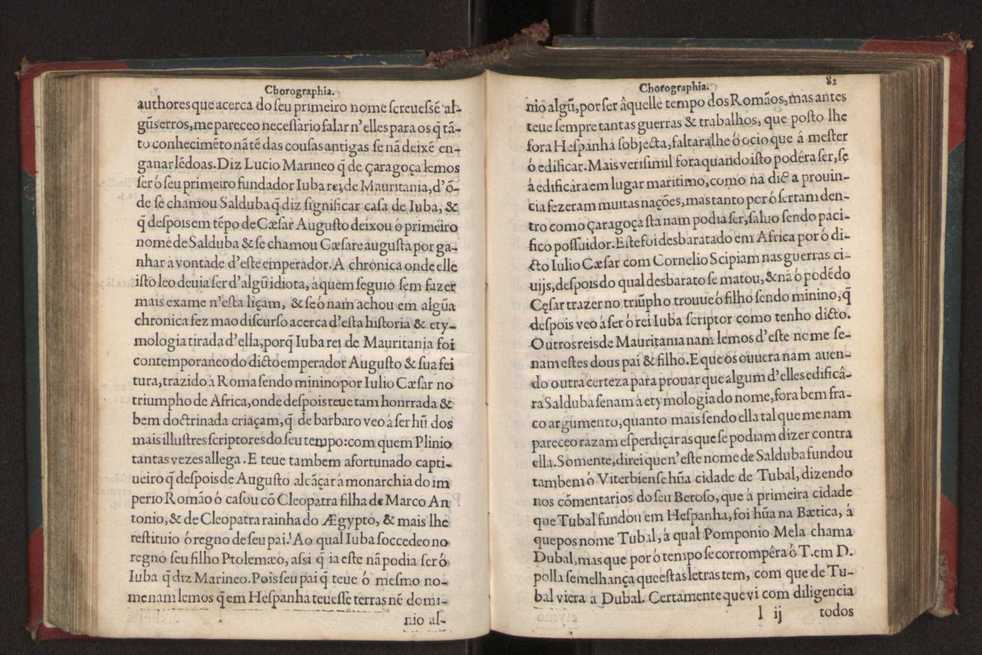 Chorographia.
authores que acerca do seu primeiro nome screuessẽ al-
gũs erros, me pareceo necessario falar n'elles para os q̃ tã-
to conhecimẽto nã tẽ das cousas antigas se nã deixẽ en-
ganar lẽdoas. Diz Lucio Marineo q̃ de çaragoça lemos
ser ó seu primeiro fundador Iuba rei de Mauritania, d'õ-
de se chamou Salduba q̃ diz significar casa de Iuba, &
q̃ despois em tẽpo de Cæsar Augusto deixou ó primeiro
nome de Salduba & se chamou Cæsare augusta por ga-
nhar a vontade d'este emperador. A chronica onde elle
isto leo deuia ser d'algũ idiota, a quem seguio sem fazer
mais exame n'esta liçam, & se ó nam achou em algũa
chronica fez mao discurso acerca d'esta historia & ety-
mologia tirada d'ella, porq̃ Iuba rei de Mauritania foi
contemporaneo do dicto emperador Augusto & sua fei
tura, trazido à Roma sendo minino por Iulio Cæsar no
triumpho de Africa, onde despois teue tam honrrada &
bem doctrinada criaçam, q̃ de barbaro veo à ser hũ dos
mais illustres scriptores do seu tempo: com quem Plinio
tantas vezes allega. E teue tambem afortunado capti-
ueiro q̃ despois de Augusto alcãçar á monarchia do im
perio Romão ó casou cõ Cleopatra filha de Marco An
tonio, & de Cleopatra rainha do Ægypto, & mais lhe
restituio ó regno de seu pai. Ao qual Iuba soccedeo no
regno seu filho Ptolemæo, assi q̃ ia este nã podia ser ó
Iuba q̃ diz Marineo. Pois seu pai q̃ teue ó mesmo no-
me nam lemos q̃ em Hespanha teuesse terras nẽ domi-
nio al-
Chorographia. 82
nio algũ, por ser âquelle tempo dos Romãos, mas antes
teue sempre tantas guerras & trabalhos, que posto lhe
fora Hespanha sobjecta, faltaralhe ó ocio que á mester
ó edificar. Mais verisimil fora quando isto podéra ser, se
á edificára em lugar maritimo, como na dicta prouin-
cia fezeram muitas nações, mas tanto per ó sertam den-
tro como Çaragoça sta nam podia ser, saluo sendo paci-
fico possuidor. Este foi desbaratado em Africa por ó di-
cto Iulio Cæsar com Cornelio Scipiam nas guerras ci-
uijs, despois do qual desbarato se matou, & nã ó podẽdo
Cęsar trazer no triũpho trouue ó filho sendo minino, q̃
despois veo á ser ó rei Iuba scriptor como tenho dicto.
Outros reis de Mauritania nam lemos d'este nome se-
nam estes dous pai & filho. E que os ouuera nam auen-
do outra certeza para prouar que algum d'elles edificâ-
ra Salduba senam á etymologia do nome, fora bem fra-
co argumento, quanto mais sendo ella tal que me nam
pareceo razam esperdiçar as que se podiam dizer contra
ella. Somente, direi que n'este nome de Salduba fundou
tambem ó Viterbiense hũa cidade de Tubal, dizendo
nos cõmentarios do seu Beroso, que á primeira cidade
que Tubal fundou em Hespanha, foi hũa na Bætica, á
que pos nome Tubal, á qual Pomponio Mela chama
Dubal, mas que por ó tempo se corrompêra ó T. em D.
polla semelhança que estas letras tem, com que de Tu-
bal viera a Dubal. Certamente que vi com diligencia
l ij todos